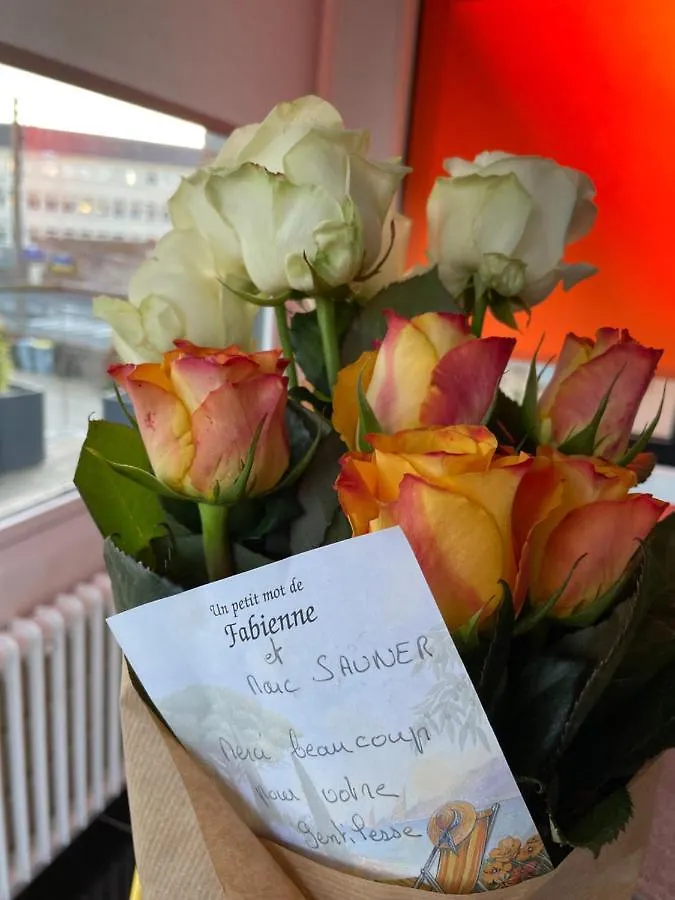 Un petit mot de
Fabienne
et
Marc SAUNER
Merci beaucoup
Pour votre
gentilesse